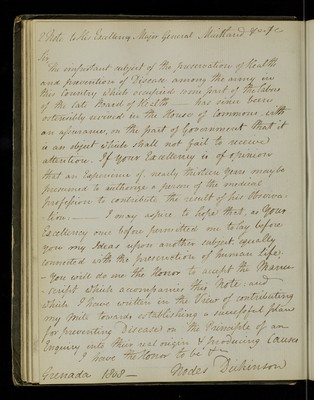 Note to His Excellency Major General Maitland &c &c
Sir
The important subject of the preservation of Health
and prevention of Disease among the army in
this Country which occupied some part of the labors
of the late Board of Health — has since been
ostensibly revived in the House of Commons with
an assurance, on the part of Government that it
is an object which shall not fail to receive
attention. If Your Excellency is of opinion
that an Experience of nearly thirteen Years may be
presumed to authorize a person of the medical
profession to contribute the result of his Observa-
tion — I may aspire to hope that, as Your
Excellency once before permitted me to lay before
you my Ideas upon another subject equally
connected with the preservation of human life,
You will do me the Honor to accept the Manu-
script which accompanies this Note: and
which I have written in the View of contributing
my mite towards establishing a successful plan
for preventing Disease on the Principle of an
Enquiry into their real origin & producing Causes
I have the Honor to be &
Grenada 1808 — Nodes Dickinson